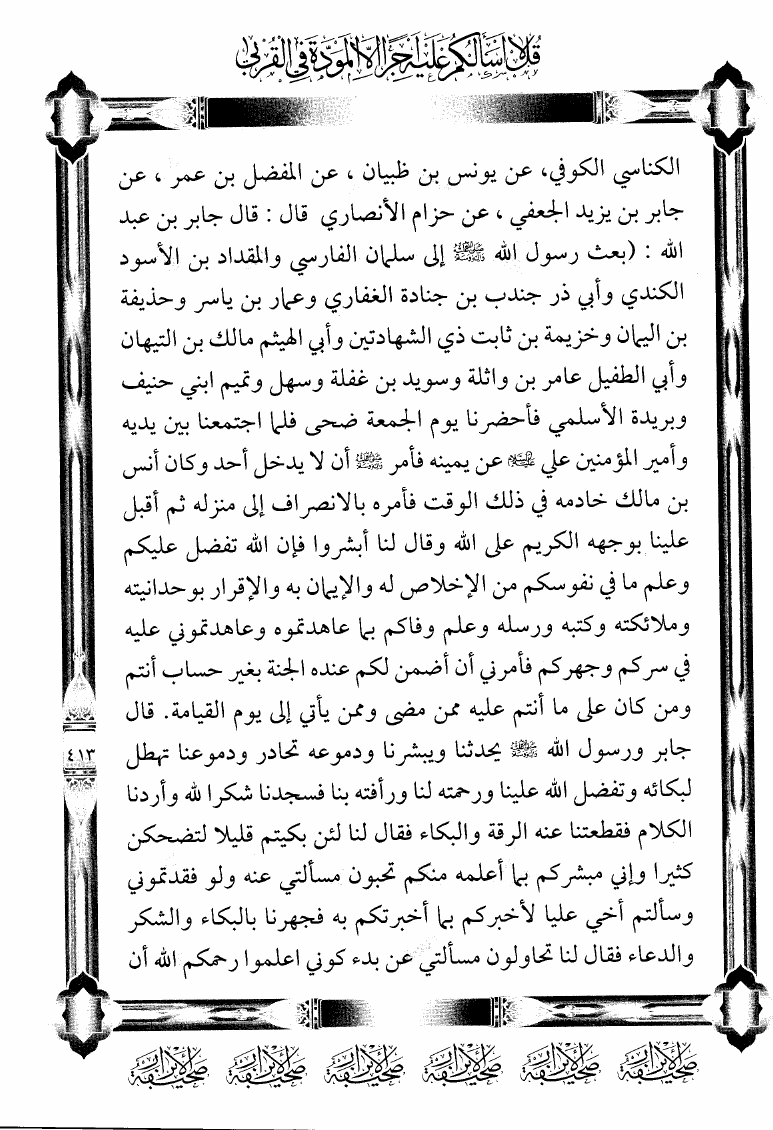 قل لا أسألكم عليه أجرا إلا المودة في القربى
الكناسي الكوفي، عن يونس بن ظبيان ، عن المفضل بن عمر ، عن
جابر بن يزيد الجعفي ، عن حزام الأنصاري قال : قال جابر بن عبد
الله : (بعث رسول الله ﷺ إلى سلمان الفارسي والمقداد بن الأسود
الكندي وأبي ذر جندب بن جنادة الغفاري وعمار بن ياسر وحذيفة
بن اليمان وخزيمة بن ثابت ذي الشهادتين وأبي الهيثم مالك بن التيهان
وأبي الطفيل عامر بن واثلة وسويد بن غفلة وسهل وتميم ابني حنيف
وبريدة الأسلمي فأحضرنا يوم الجمعة ضحى فلما اجتمعنا بين يديه
وأمير المؤمنين علي عليه السلام عن يمينه فأمر ﷺ أن لا يدخل أحد وكان أنس
بن مالك خادمه في ذلك الوقت فأمره بالانصراف إلى منزله ثم أقبل
علينا بوجهه الكريم على الله وقال لنا أبشروا فإن الله تفضل عليكم
وعلم ما في نفوسكم من الإخلاص له والإيمان به والإقرار بوحدانيته
وملائكته وكتبه ورسله وعلم وفاكم بما عاهدتموه وعاهدتموني عليه
في سركم وجهركم فأمرني أن أضمن لكم عنده الجنة بغير حساب أنتم
ومن كان على ما أنتم عليه ممن مضى وممن يأتي إلى يوم القيامة. قال
جابر ورسول الله ﷺ يحدثنا ويبشرنا ودموعه تحادر ودموعنا تهطل
٤١٣
لبكائه وتفضل الله علينا ورحمته لنا ورأفته بنا فسجدنا شكرا لله وأردنا
الكلام فقطعتنا عنه الرقة والبكاء فقال لنا لئن بكيتم قليلا لتضحكن
كثيرا وإني مبشركم بما أعلمه منكم تحبون مسألتي عنه ولو فقدتموني
وسألتم أخي عليا لأخبركم بما أخبرتكم به فجهرنا بالبكاء والشكر
والدعاء فقال لنا تحاولون مسألتي عن بدء كوني اعلموا رحمكم الله أن
صحيفة الأبرار صحيفة الأبرار صحيفة الأبرار صحيفة الأبرار صحيفة الأبرار صحيفة الأبرار